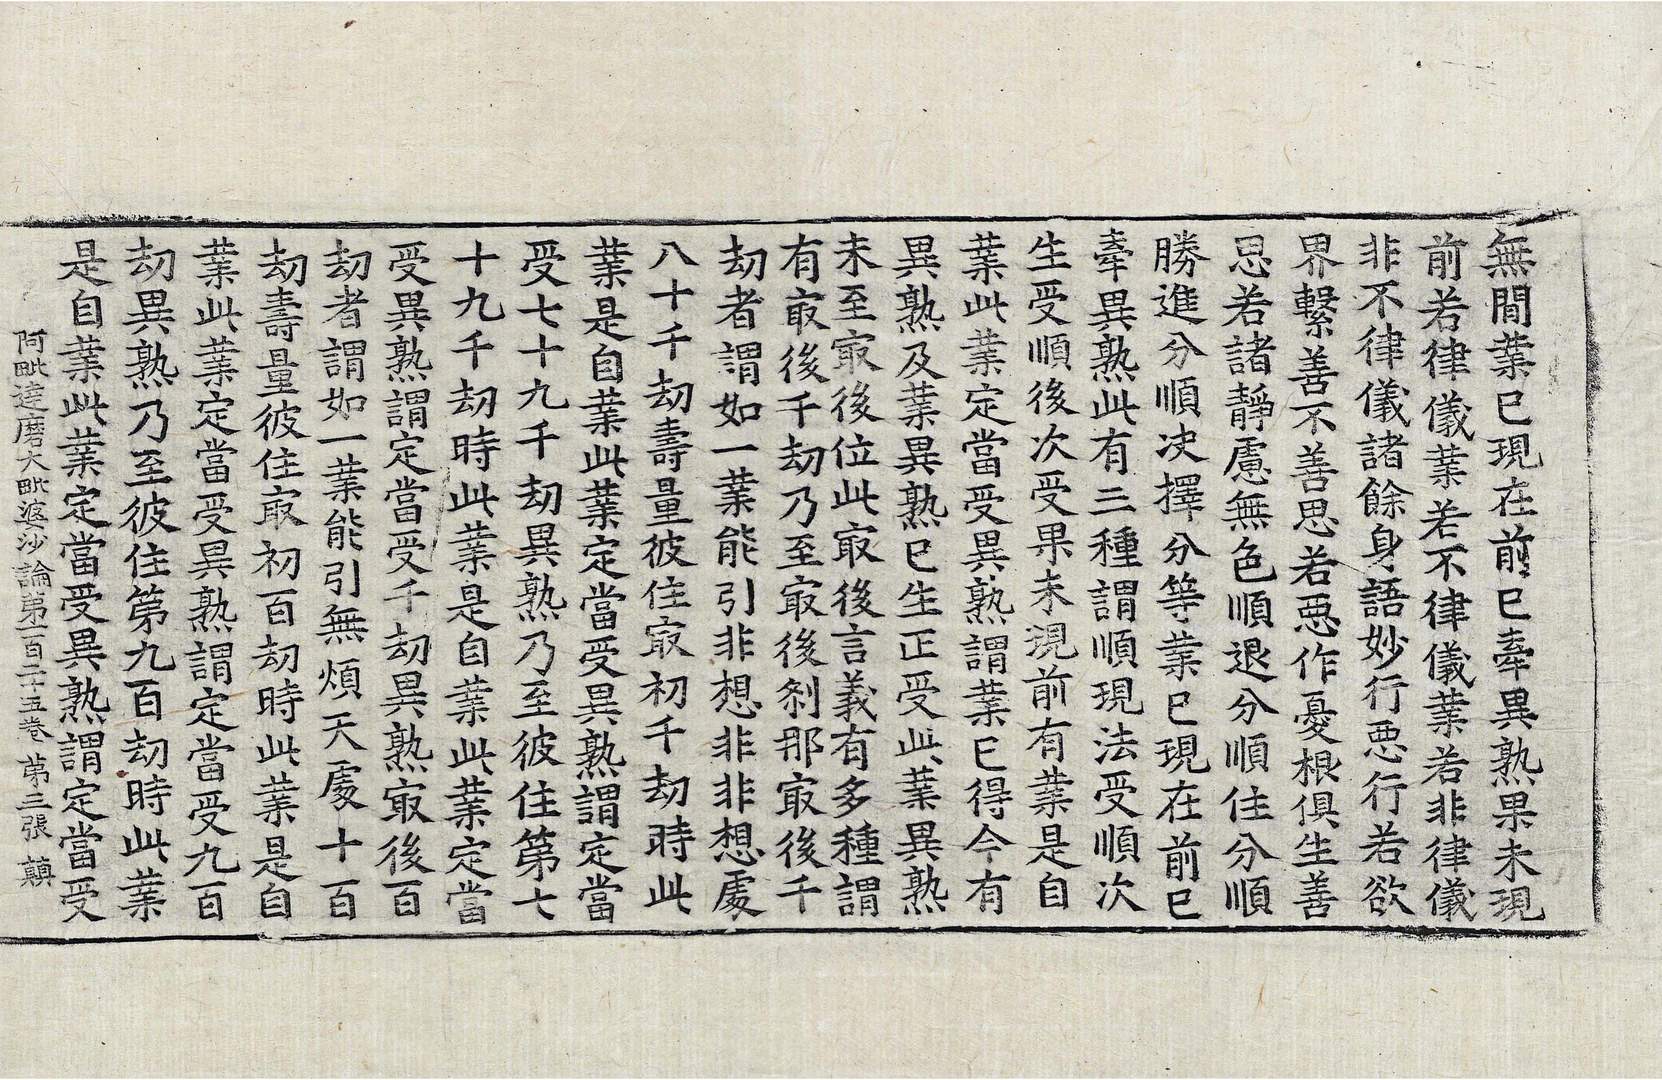 無間業已現在前已牽異熟果未現
前若律儀業若不律儀業若非律儀
非不律儀諸餘身語妙行惡行若欲
界繫善不善思若惡作憂根俱生善
思若諸靜慮無色順退分順住分順
勝進分順决擇分等業已現在前已
牽異熟此有三種謂順現法受順次
生受順後次受果未現前有業是自
業此業定當受異熟謂業已得今有
異熟及業異熟已生正受此業異熟
未至㝡後位此㝡後言義有多種謂
有㝡後千劫乃至㝡後刹那㝡後千
劫者謂如一業能引非想非非想處
八十千劫壽量彼住㝡初千劫時此
業是自業此業定當受異熟謂定當
受七十九千劫異熟乃至彼住第七
十九千劫時此業是自業此業定當
受異熟謂定當受千劫異熟㝡後百
劫者謂如一業能引無煩天處十百
劫壽量彼住㝡初百劫時此業是自
業此業定當受異熟謂定當受九百
劫異熟乃至彼住第九百劫時此業
是自業此業定當受異熟謂定當受
阿毗達磨大毗婆沙論第一百二十五卷 第三張 顛